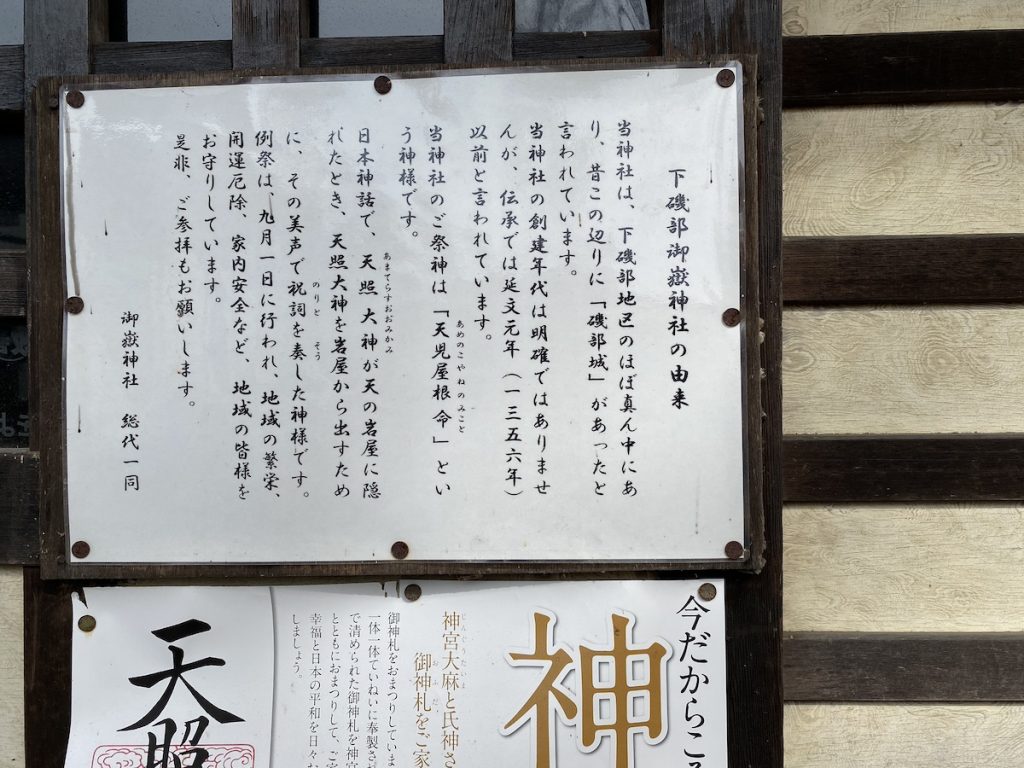 下磯部御嶽神社の由来
当神社は、下磯部地区のほぼ真ん中にあ
り、昔この辺りに「磯部城」があったと
言われています。
当神社の創建年代は明確ではありませ
んが、伝承では延文元年（一三五六年）
以前と言われています。
あめのこやねのみこと
当神社のご祭神は「天児屋根命」とい
う神様です。
あまてらすおおみかみ
日本神話で、天照大神が天の岩屋に隠
れたとき、天照大神を岩屋から出すため
のりと そう
に、その美声で祝詞を奏した神様です。
例祭は、九月一日に行われ、地域の繁栄、
開運厄除、家内安全など、地域の皆様を
お守りしています。
是非、ご参拝もお願いします。
御嶽神社 総代一同
今だからこそ
神
じんぐうたいま
神宮大麻と氏神さ
おふだ
御神札をご家
御神札をおまつりしていま
一体一体ていねいに奉製さ
で清められた御神札を神宮
とともにおまつりして、ご家
幸福と日本の平和を日々
しましょう。
天照